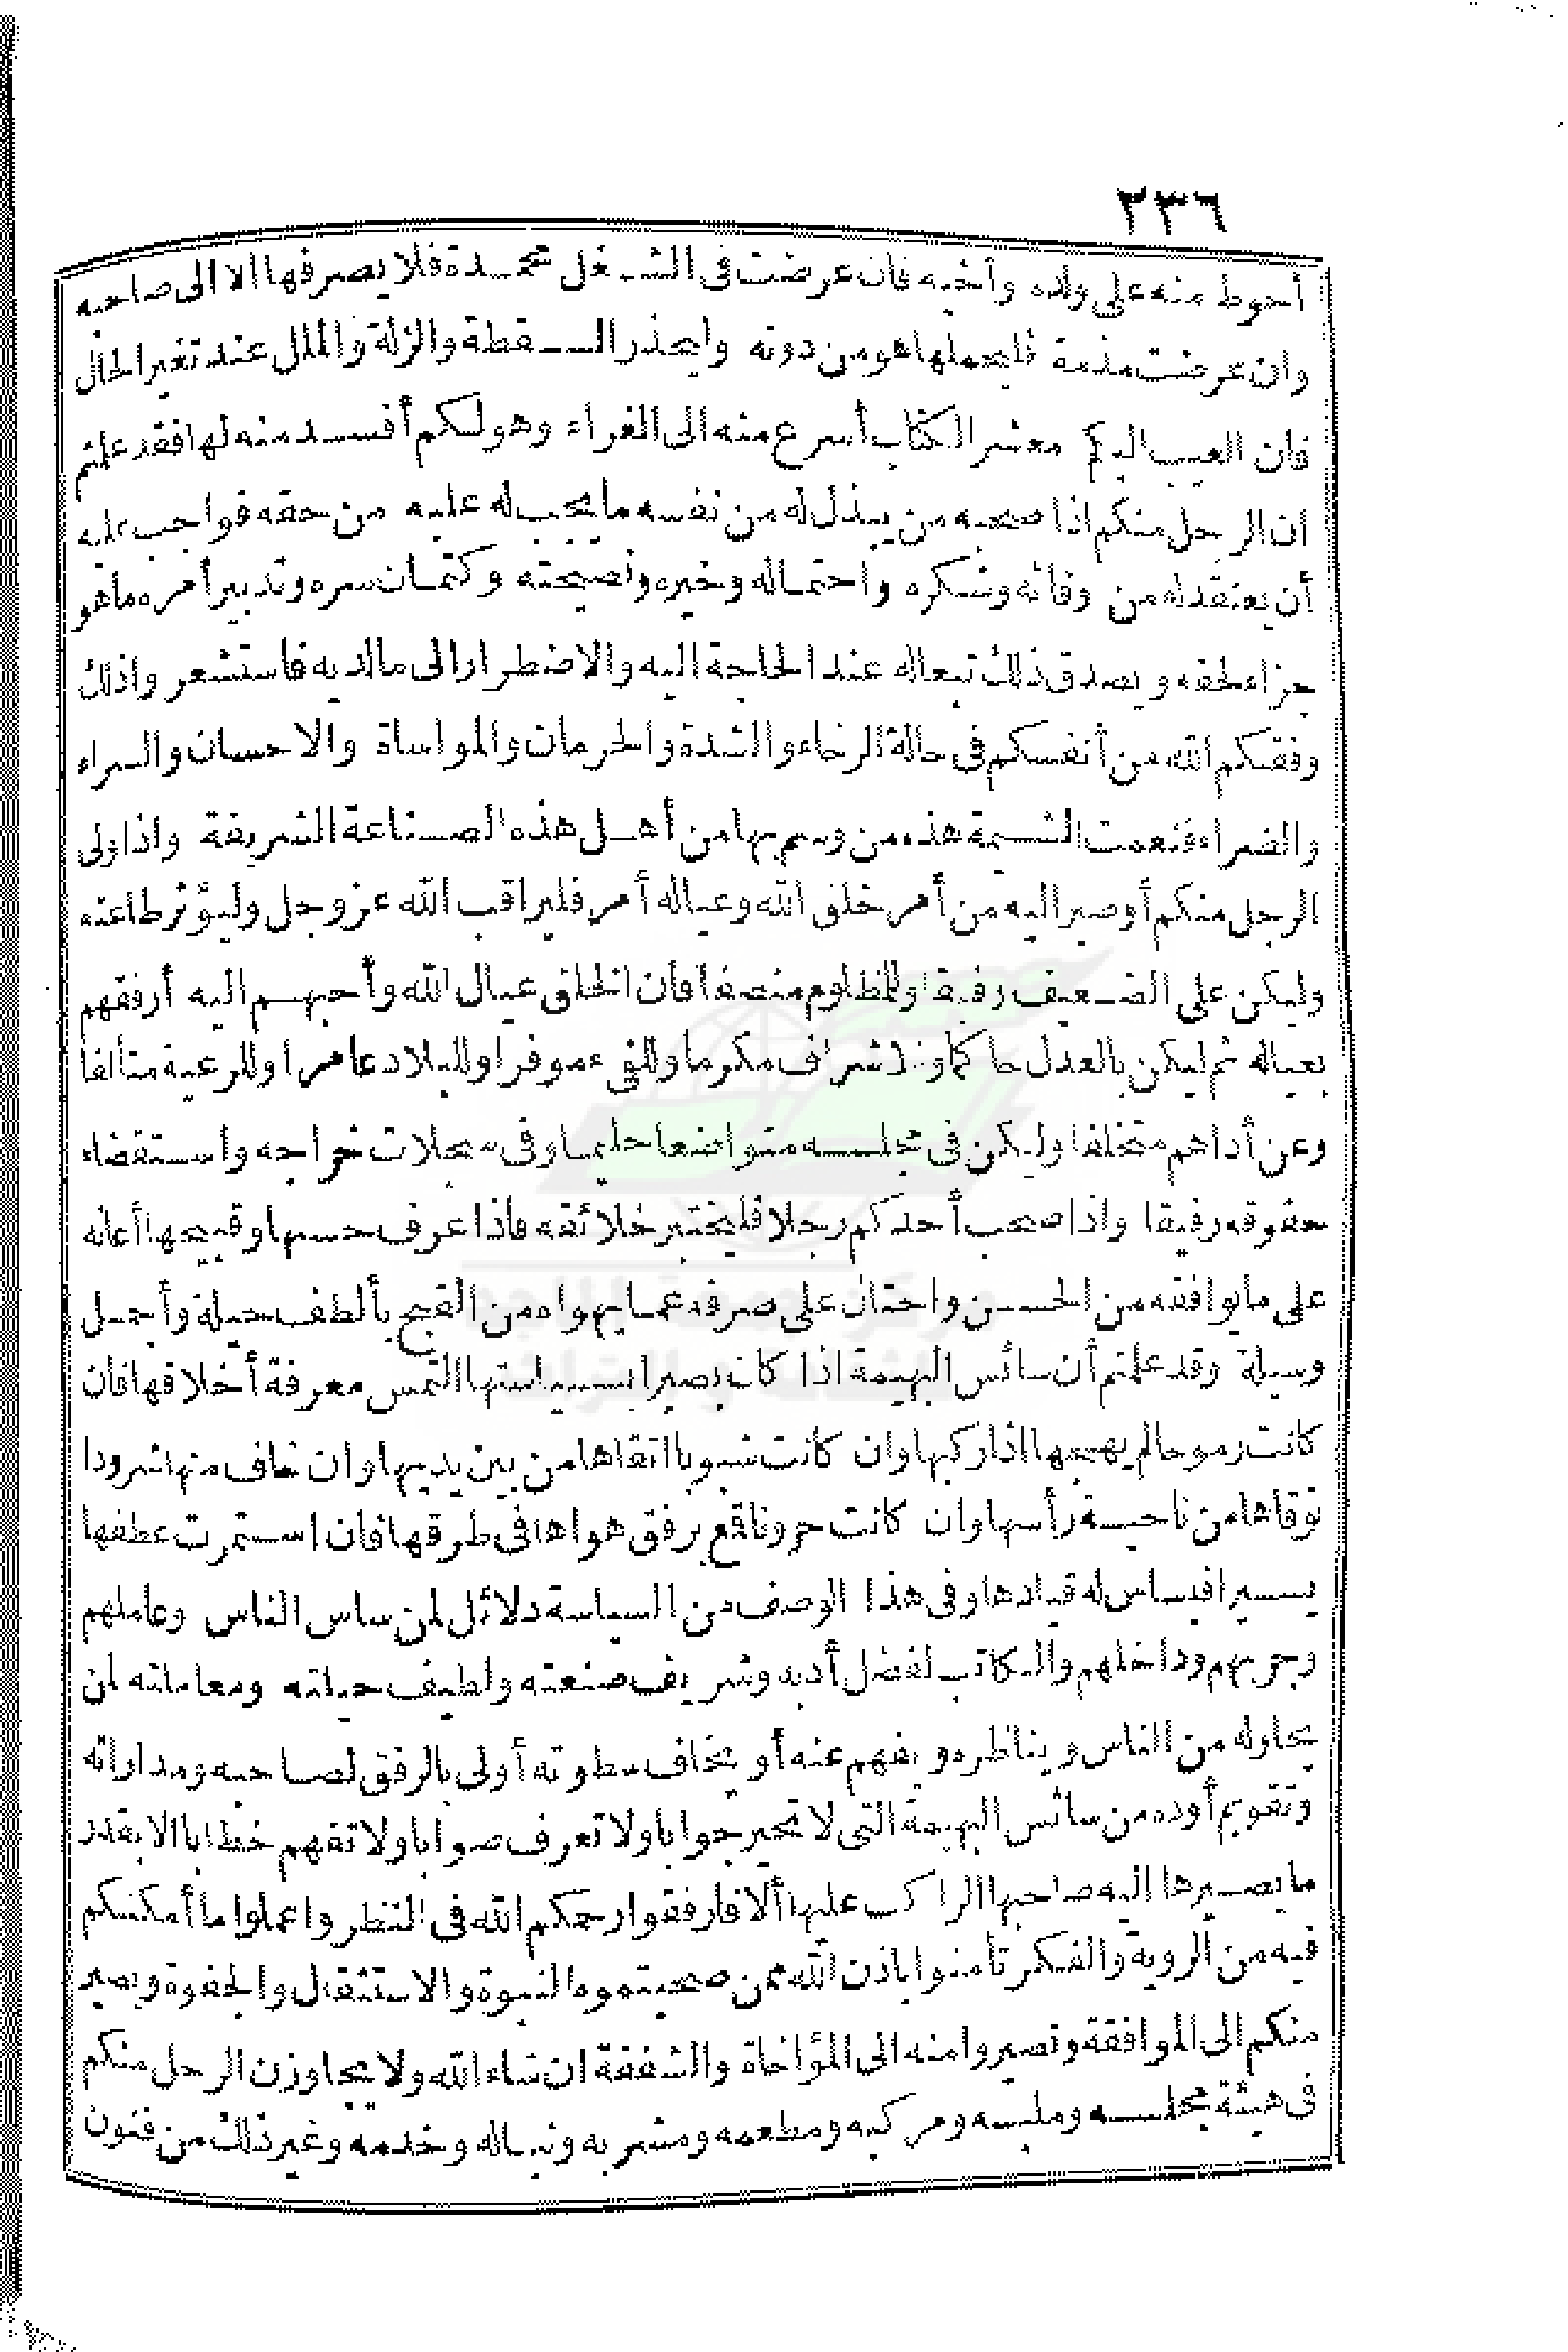 ٢٣٦
أحوط منه على ولده وأخيه فان عرضت فى الشـغل محمـدة فلا يصرفها الا الى صاحبه
وان عرضت مذمة فليحملها هو من دونه وليحذر السـقطة والزلة والملل عند تغير الحال
فان العيب اليكم معشر الكتاب أسرع منه الى الفراء وهو لكم أفسـد منه لها فقد علمتم
ان الرجل منكم اذا صحبه من يبذل له من نفسه ما يجب له عليه من حقه فواجب عليه
أن يعتقد له من وفائه وشكره واحتماله وخيره ونصيحته وكتمان سره وتدبير أمره ما هو
جزاء لحقه ويصدق ذلك تبعاله عند الحاجة اليه والاضطرار الى مالديه فاستشعروا ذلك
وفقكم الله من أنفسكم فى حالة الرخاء والشدة والحرمان والمواساة والاحسان والسراء
والضراء فنعمت الشـيمة هذه من وسم بها من أهـل هذه الصـناعة الشريفة واذا ولى
الرجل منكم أو صير اليه من أمر خلق الله وعياله أمر فليراقب الله عز وجل وليؤثر طاعته
وليكن على الضـعيف رفيقا وللمظلوم منصفا فان الخلق عيال الله وأحبهـم اليه أرفقهم
بعياله ثم ليكن بالعدل حاكما وللاشراف مكرما وللفىء موفرا وللبلاد عامرا وللرعية متألفا
وعن أذاهم متخلفا وليكن فى مجلسـه متواضعا حليما وفى سجلات خراجه واسـتقضاء
حقوقه رفيقا واذا صحب أحدكم رجلا فليختبر خلائقه فاذا عرف حسنها وقبيحها أعانه
على ما يوافقه من الحسـن واحتال على صرفه عمـا يهواه من القبح بألطف حيلة وأجمـل
وسيلة وقد علمتم أن سائس البهيمة اذا كان بصيرا بسـياستها التمس معرفة أخلاقها فان
كانت رموحا لم يهجها اذا ركبها وان كانت شبوبا اتقاها من بين يديها وان خاف منها شرودا
توقاها من ناحيـة رأسها وان كانت حرونا قمع برفق هواها فى طرقها فان اسـتمرت عطفها
يسـيرا فيساس له قيادها وفى هذا الوصف من السياسة دلائل لمن ساس الناس وعاملهم
وجربهم وداخلهم والكاتب لفضل أدبه وشريف صنعته ولطيف حيلته ومعاملته لمن
يحاوله من الناس ويناظره ويفهم عنه أو يخاف سطوته أولى بالرفق لصاحبه ومداراته
وتقويم أوده من سائس البهيمة التى لا تحير جوابا ولا تعرف صوابا ولا تفهم خطابا الا بقدر
ما يصـيرها اليه صاحبها الراكب عليها ألا فارفقوا رحمكم الله فى النظر واعملوا ما أمكنكم
فيه من الروية والفكر تأمنوا باذن الله ممن صحبتموه النبوة والاستثقال والجفوة ويصير
منكم الى الموافقة وتصيروا منه الى المؤاخاة والشفقة ان شاء الله ولا يجاوزن الرجل منكم
فى هيئة مجلسـه وملبسه ومركبه ومطعمه ومشربه وبنائه وخدمه وغير ذلك من فنون